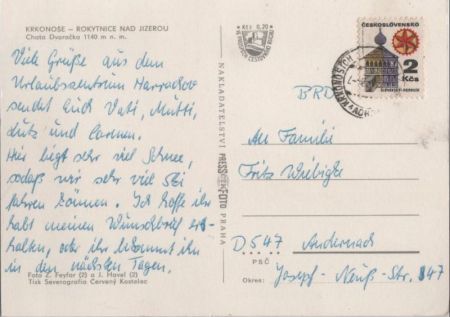 KRKONOŠE – ROKYTNICE NAD JIZEROU
Chata Dvoračka 1140 m n. m.
Viele Grüße aus dem
Urlaubszentrum Harrachov
sendet Euch Vati, Mutti,
Lutz und Carmen.
Hier liegt sehr viel Schnee,
sodaß wir sehr viel Ski
fahren können. Ich hoffe ihr
habt meinen Wunschbrief er-
halten, oder ihr bekommt ihn
in den nächsten Tagen.
Foto Z. Feyfar (2) a J. Havel (2)
Tisk Severografia Červený Kostelec
Kčs 0,20
NAKLADATELSTVÍ PRESSFOTO PRAHA
ČESKOSLOVENSKO
2
Kčs
BRD
An Familie
Fritz
D 547 Andernach
PSČ
Josef-Neuß-Str. 47
Okres: